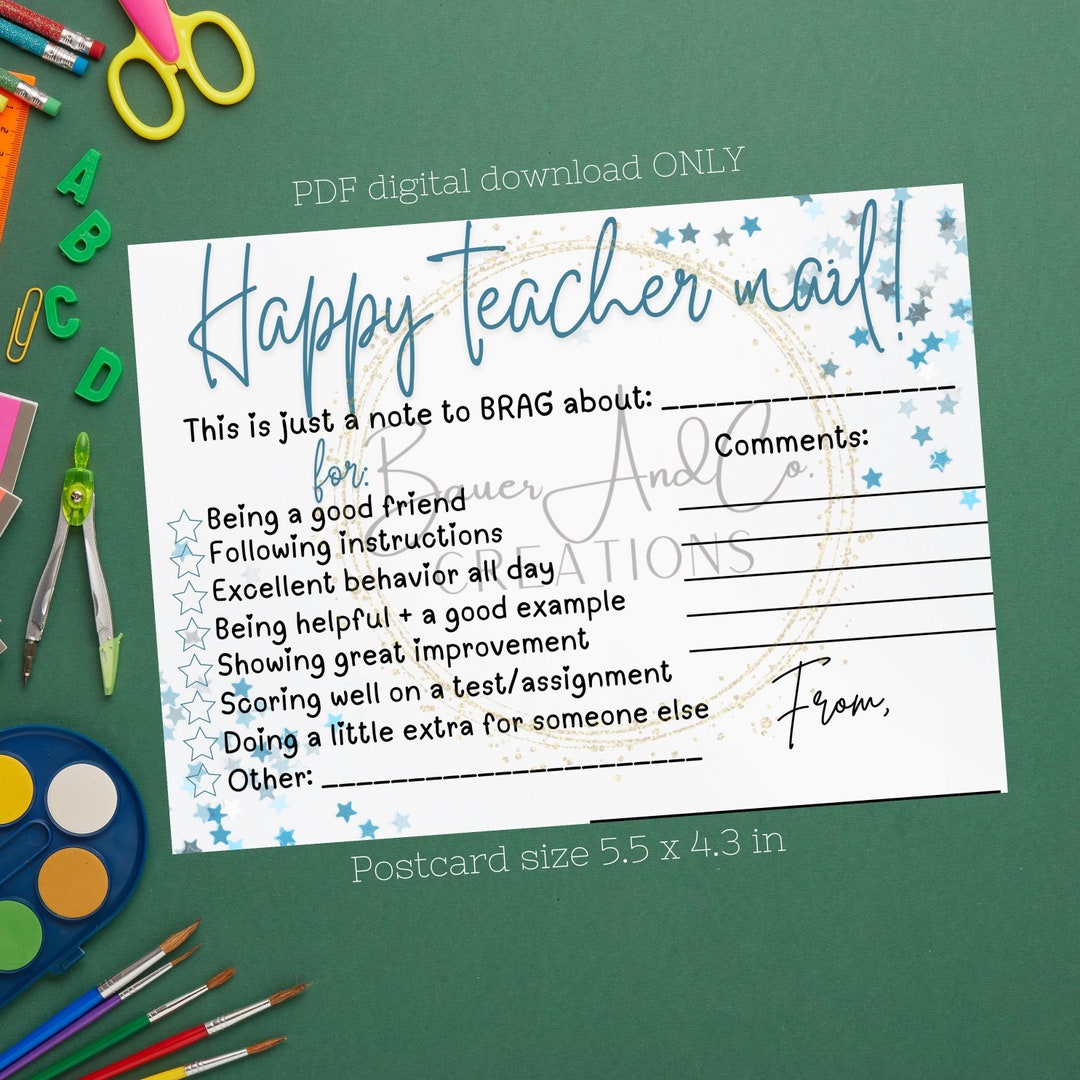 PDF digital download ONLY
Happy teacher mail!
This is just a note to BRAG about: _______________
for:
Comments:
Being a good friend
Following instructions
Excellent behavior all day
Being helpful + a good example
Showing great improvement
Scoring well on a test/assignment
Doing a little extra for someone else
Other: ____________________
From,
Bauer And Co.
CREATIONS
Postcard size 5.5 x 4.3 in
A
B
C
D
1
2